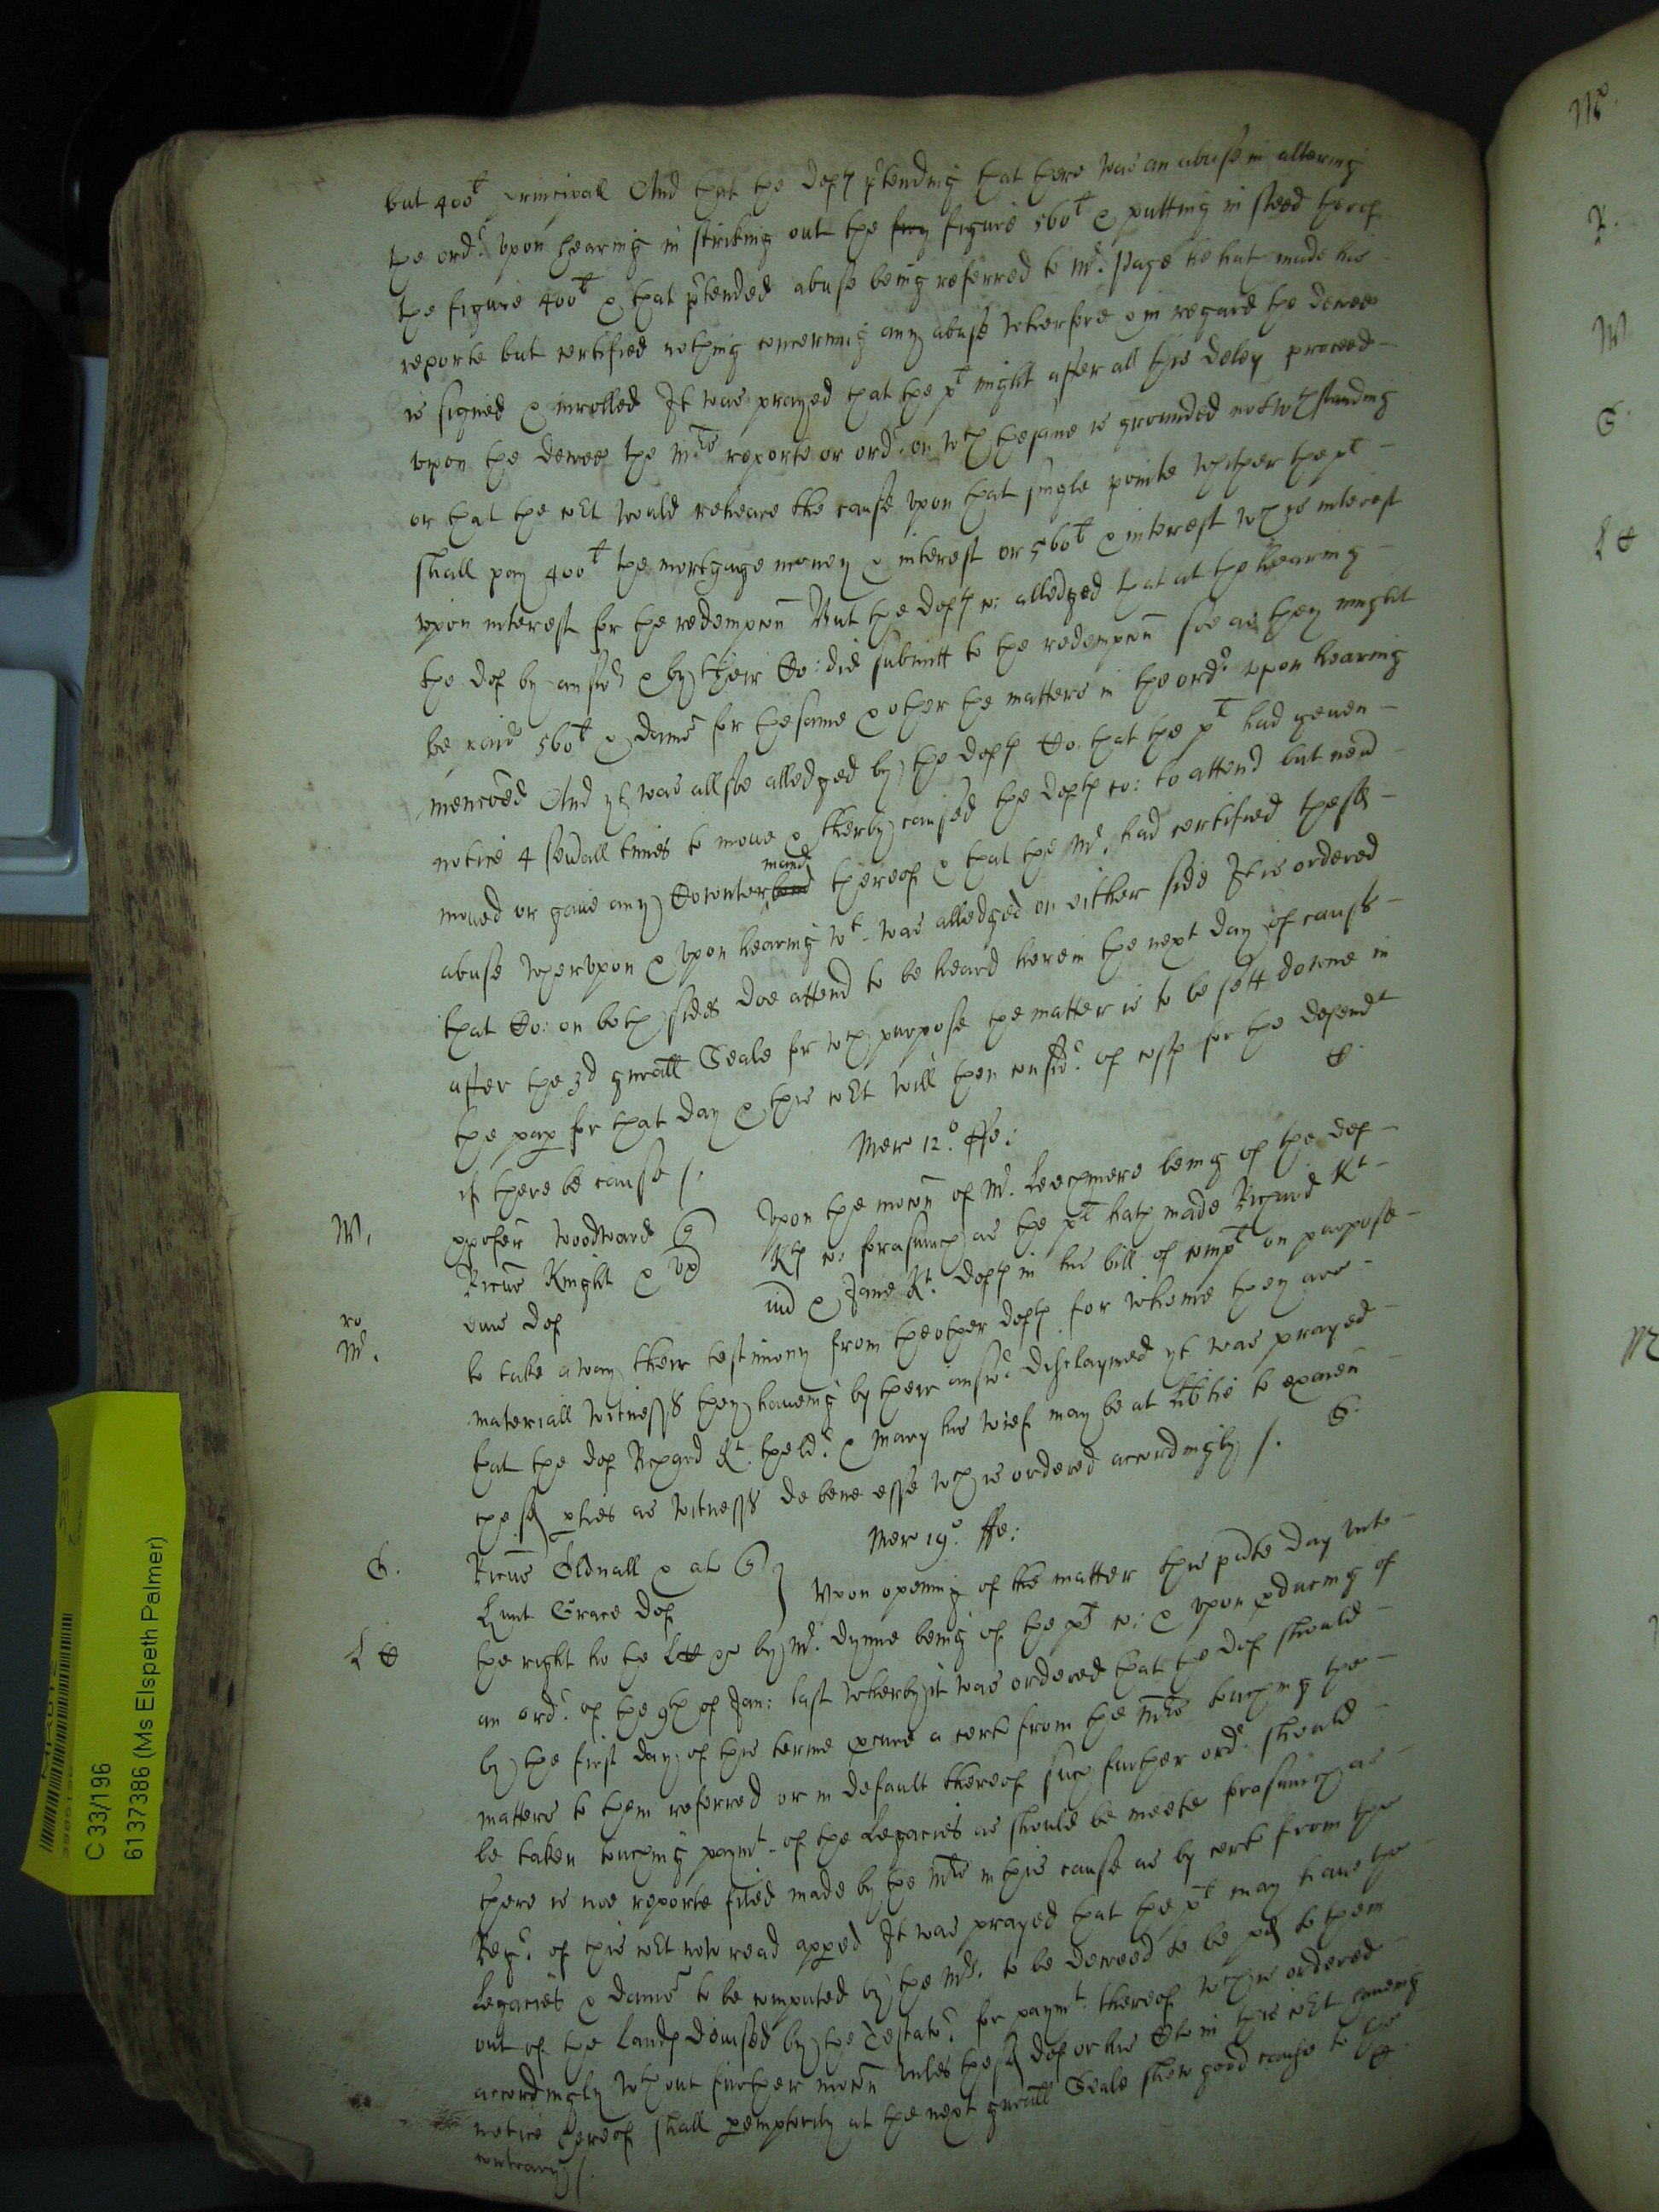 but 400l principall And that the defts p'tending that there was an abuse in altering
the ordr. vpon hearing in striking out the figure 560l & putting in steed therof
the figure 400l & that p'tended abuse being referred to Mr. Page he hat made his
reporte but certified nothing concerning any abuse Wherfore & in regard the decree
is signed & inrolled It was prayed that the plt might after all this delay proceed
vpon the decree the Mrs reporte or ordr. on wch the same is grounded notwthstanding
or that the cort would reheare the cause vpon that single pointe whither the plt
shall pay 400l the mortgage money & interest or 560l & interest wch is interest
vpon interest for the redempcon But the defts co: alledged that at the hearing
the def by answer & by their Co: did submitt to the redempcon soe as they might
be paid 560l & dams for the same & other the matters in the ordr vpon hearing
mencoed And yt was allsoe alledged by the defts Co. that the plt had geuen
notice 4 seu'all times to moue & therby caused the defts co: to attend but neu'
moued or gaue any Countermand thereof & that the Mr. had certified the sd
abuse Wherevpon & vpon hearing wt was alledged on either side It is ordered
that Co: on both sides doe attend to be heard herein the next day of causes
after the 3d gen'all Seale for wch purpose the matter is to be sett downe in
the pap for that day & this cort will then considr. of costs for the defendt
if there be cause /.
Mer 12o. ffe:
W.
Woodward
Vpon the mocon of Mr. Leechmere being of the def
Ricus Knight & vx
Kts co: forasmuch as the plt hath made Richard Kt
eius def
iud & Jane Kt. defts in his bill of compt on purpose
ro
Mr.
to take away their testimony from the other defts for whome they are
materiall witnesses they haueing by their answr disclaymed yt was prayed
that the def Richard Kt. theldr. & Mary his wief may be at lib'tie to examen
the sd p'ties as witnesses de bene esse wch is ordered accordingly /.
Mer 19o. ffe:
G.
Ricus Oldnall & al
Grace def
Vpon opening of the matter this p'nte day vnto
the right ho the by Mr. Dynne being of the plts co: & vpon p'ducing of
an ordr. of the 9th of Jan: last wherby it was ordered that the def should
by the first day of this terme p'cure a cert from the Mrs touching the
matters to them referred or in default thereof such further ordr. should
be taken touching paymt. of the Legacies as should be meete forasmuch as
there is noe reporte filed made by the Mrs in this cause as by cert from the
Regr. of this cort now read apped It was prayed that the plt may haue the
Legacies & dams to be computed by the Mr. to be decreed to be pd to them
out of the Lands deuised by the Testator. for paymt. thereof wch is ordered
accordingly wthout further mocon vnles the sd def or his Clo in this cort haueing
notice hereof shall p'emptorily at the next gen'all Seale shew good cause to the
contrary /.
C 33/196
6137386 (Ms Elspeth Palmer)